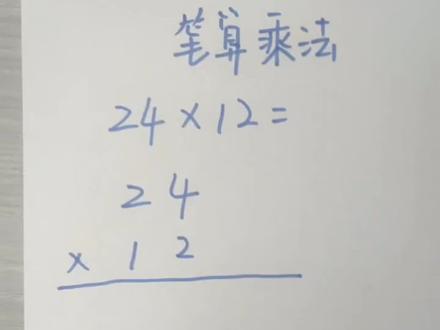 笔算乘法
24×12=
24
×12